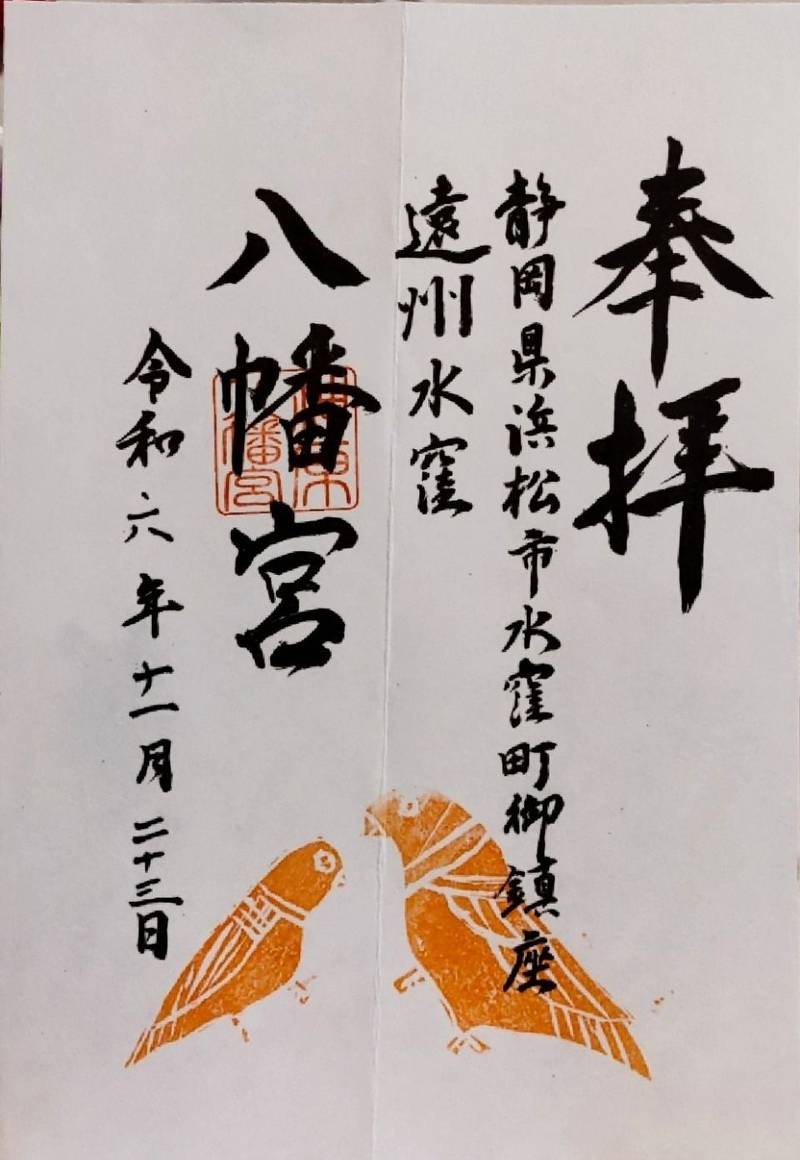 奉拝
静岡県浜松市水窪町御鎮座
遠州水窪
八幡宮
令和六年十一月二十三日